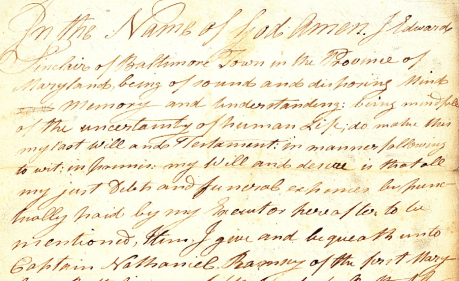 In the Name of God Amen. I Edward
Sinclair of Baltimore Town in the Province of
Maryland, being of sound and disposing Mind
Memory and understanding; being mindful
of the uncertainty of human Life; do make this
my last Will and Testament: in manner following
to wit: in primis: my Will and desire is that all
my just Debts and funeral expences be punc-
tually paid by my Executor hereafter to be
mentioned, Item. I give and bequeath unto
Captain Nathaniel Ramsey of the first Mary-